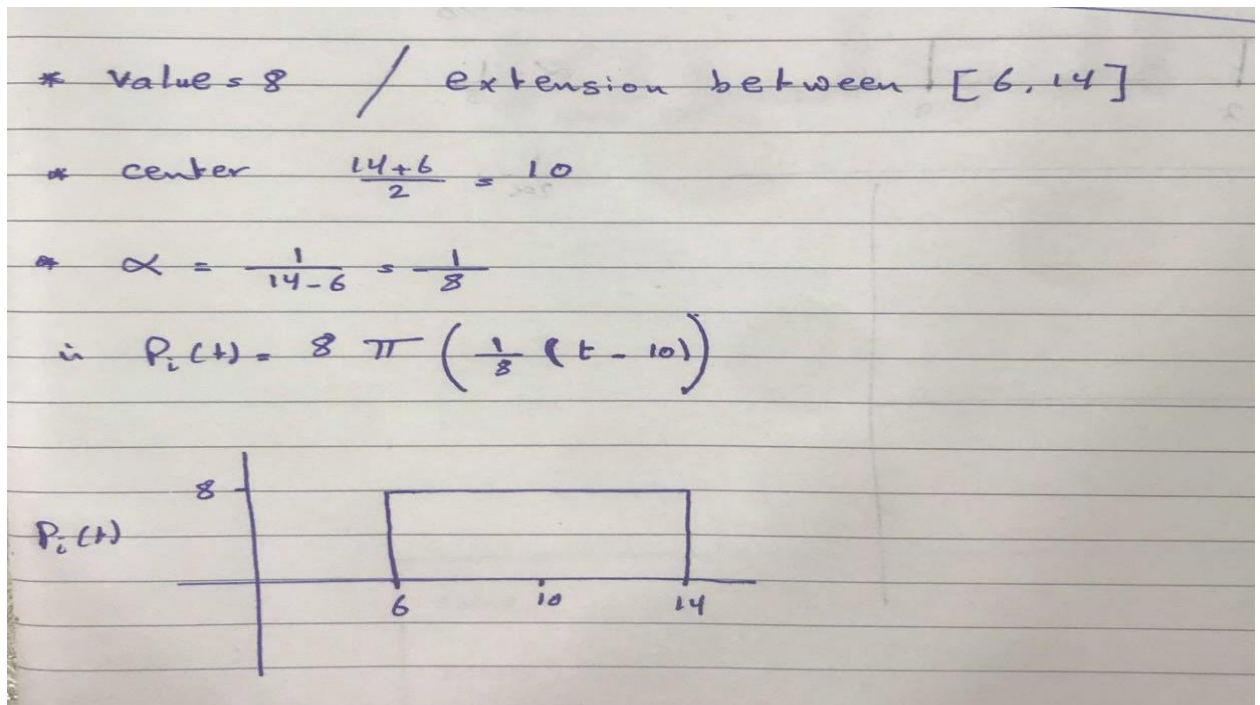 * Value = 8 / extension between [6, 14]
* center 14+6/2 = 10
* α = 1/14-6 = 1/8
∴ Pi(t) = 8 π (1/8 (t - 10))
8
Pi(t)
6 10 14